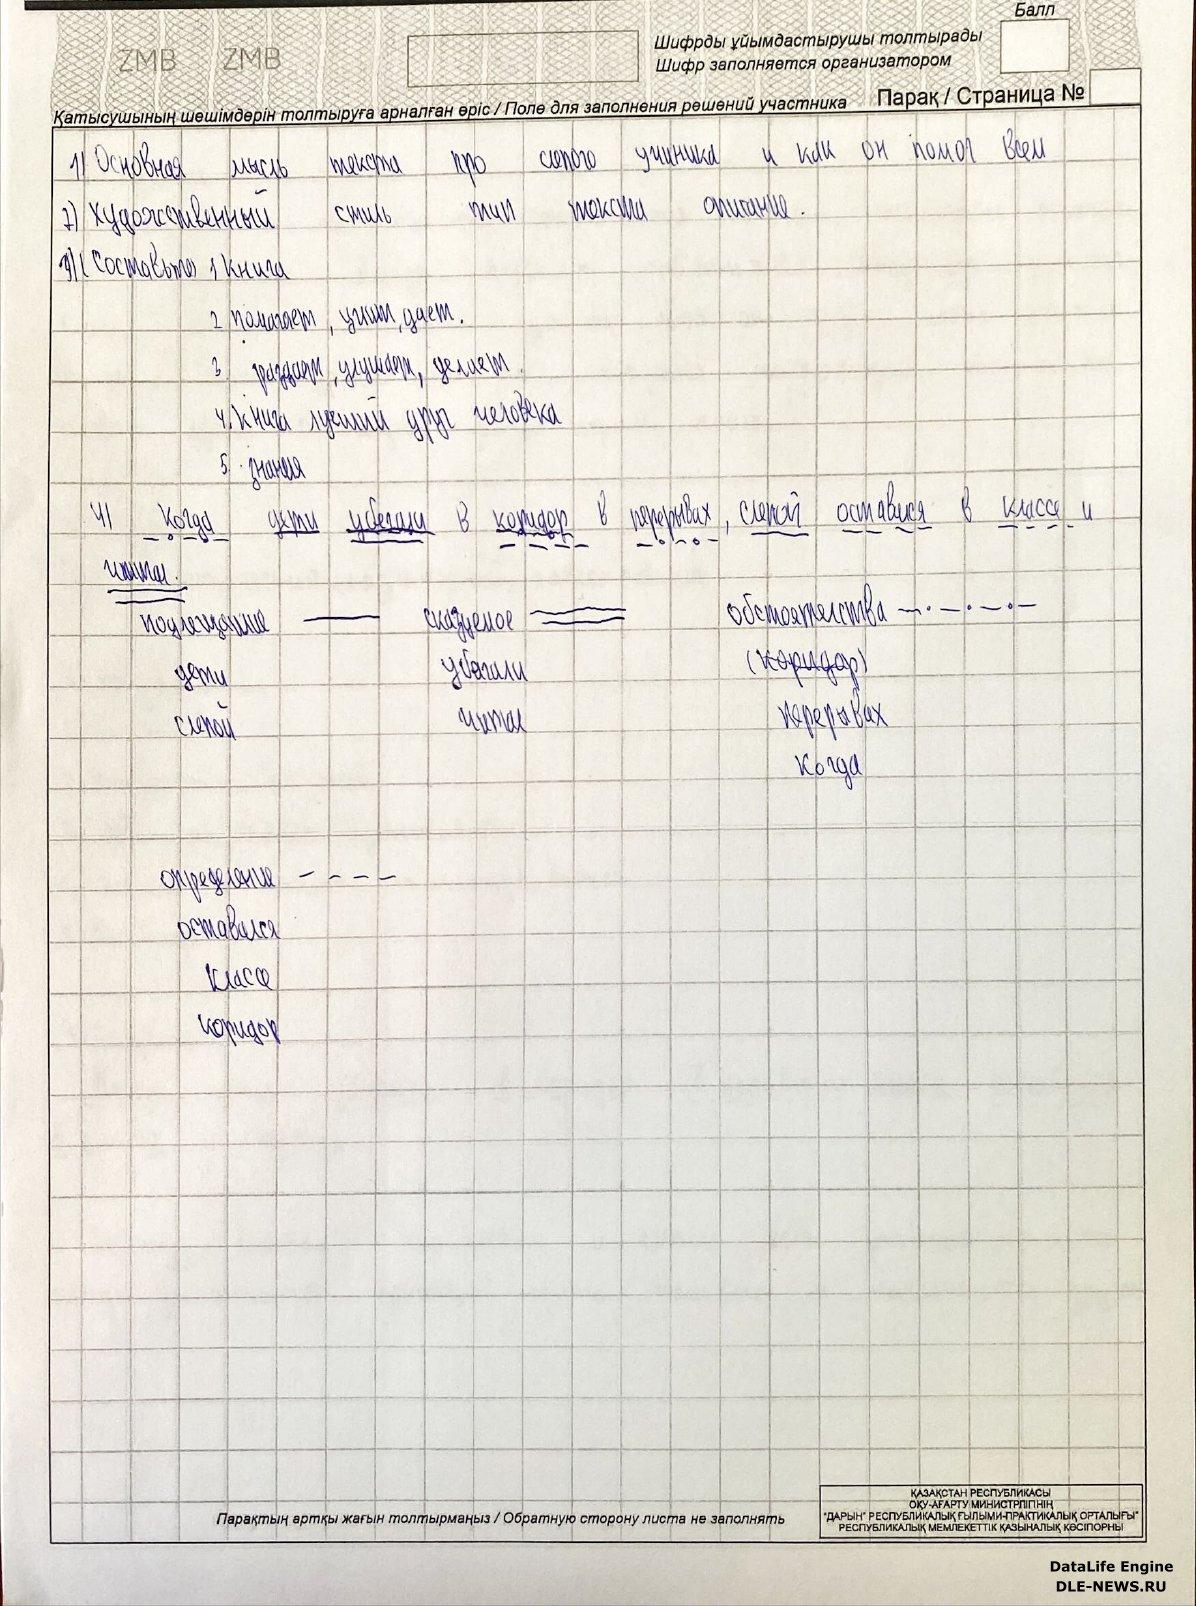 Балл
ZMB ZMB
Шифрды ұйымдастырушы толтырады
Шифр заполняется организатором
Парақ / Страница №
Қатысушының шешімдерін толтыруға арналған өріс / Поле для заполнения решений участника
1) Основная мысль текста про слепого ученика и как он помог всем
2) Художественный стиль тип текста описание.
3) Составьто 1 Книга
2 помагает, учит, дает.
3. раздает, улушает, делает.
4. Книга лучший друг человека
5. знания
4) Когда дети убегали в коридор в перерывах, слепой оставися в классе и
читал.
подлежащие сказуемое обстоятелства
дети убегали (коридор)
слепой читал перерывах
когда
определение
оставался
классе
коридор
Парақтың артқы жағын толтырмаңыз / Обратную сторону листа не заполнять
ҚАЗАҚСТАН РЕСПУБЛИКАСЫ
ОҚУ-АҒАРТУ МИНИСТРЛІГІНІҢ
"ДАРЫН" РЕСПУБЛИКАЛЫҚ ҒЫЛЫМИ-ПРАКТИКАЛЫҚ ОРТАЛЫҒЫ"
РЕСПУБЛИКАЛЫҚ МЕМЛЕКЕТТІК ҚАЗЫНАЛЫҚ КӘСІПОРНЫ
DataLife Engine
DLE-NEWS.RU